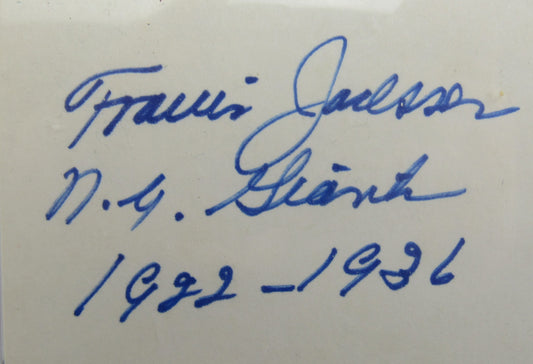 Travis Jackson
N.Y. Giants
1922-1936